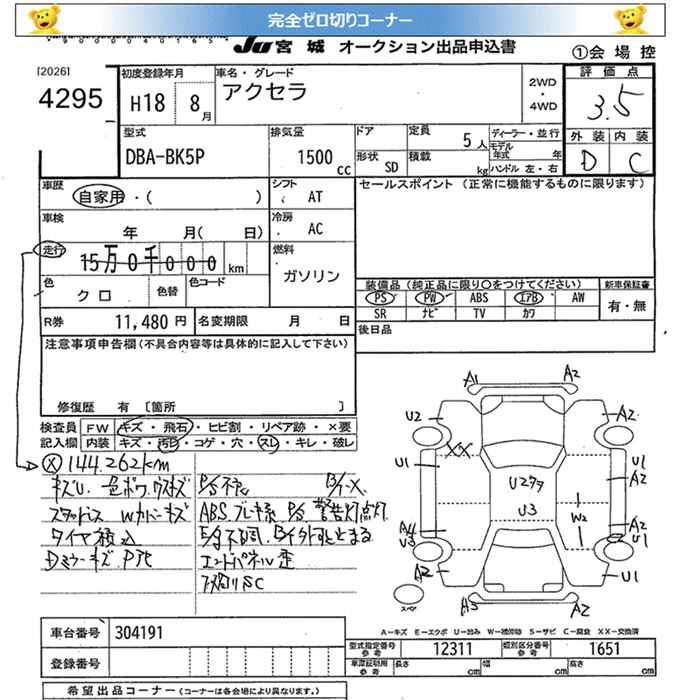 完全ゼロ切りコーナー
JU 宮城 オークション出品申込書
①会場控
[2026]
4295
初度登録年月
H18 8月
車名・グレード
アクセラ
2WD・4WD
評価点
3.5
外装 内装
D C
型式
DBA-BK5P
排気量
1500cc
ドア
形状 SD
定員 5人
積載 kg
ディーラー・並行
モデル年式 年
ハンドル 左・右
車歴
自家用・( )
シフト
AT
セールスポイント (正常に機能するものに限ります)
車検
年 月( 日)
冷房
AC
走行
15万0千000km
燃料
ガソリン
色
クロ
色替
色コード
装備品(純正品に限り○をつけてください) 新車保証書
PS PW ABS エアB AW
有・無
SR ナビ TV カワ
R券
11,480円
名変期限 月 日
後日品
注意事項申告欄(不具合内容等は具体的に記入して下さい)
修復歴 有 〔箇所 〕
検査員 FW キズ・飛石・ヒビ割・リペア跡・×要
記入欄 内装 キズ・汚れ・コゲ・穴・スレ・キレ・破レ
Ⓧ144.262km
キズU. 色ボケ.ウスキズ
スタッドレス Wカバーキズ
タイヤ積込
Dミラーキズ. P凹
P/S不良 B/T-X
ABS.ブレーキ系 P/S 警告灯点灯
E/g不調. B外すと止まる
エンドパネル歪
下廻りSC
A1 A2
U2 A2
XX
U1 U1
U2タタ
U3
W2
A4 U3
A2 U1
A2 U1
スペア
A3 A2
A−キズ E−エクボ U−凹み W−補修跡 S−サビ C−腐食 XX−交換済
車台番号 304191
型式指定番号 参考 12311
類別区分番号 参考 1651
登録番号
車庫証明用 参考 長さ cm 幅 cm 高さ cm
希望出品コーナー (コーナーは各会場により異なります。)